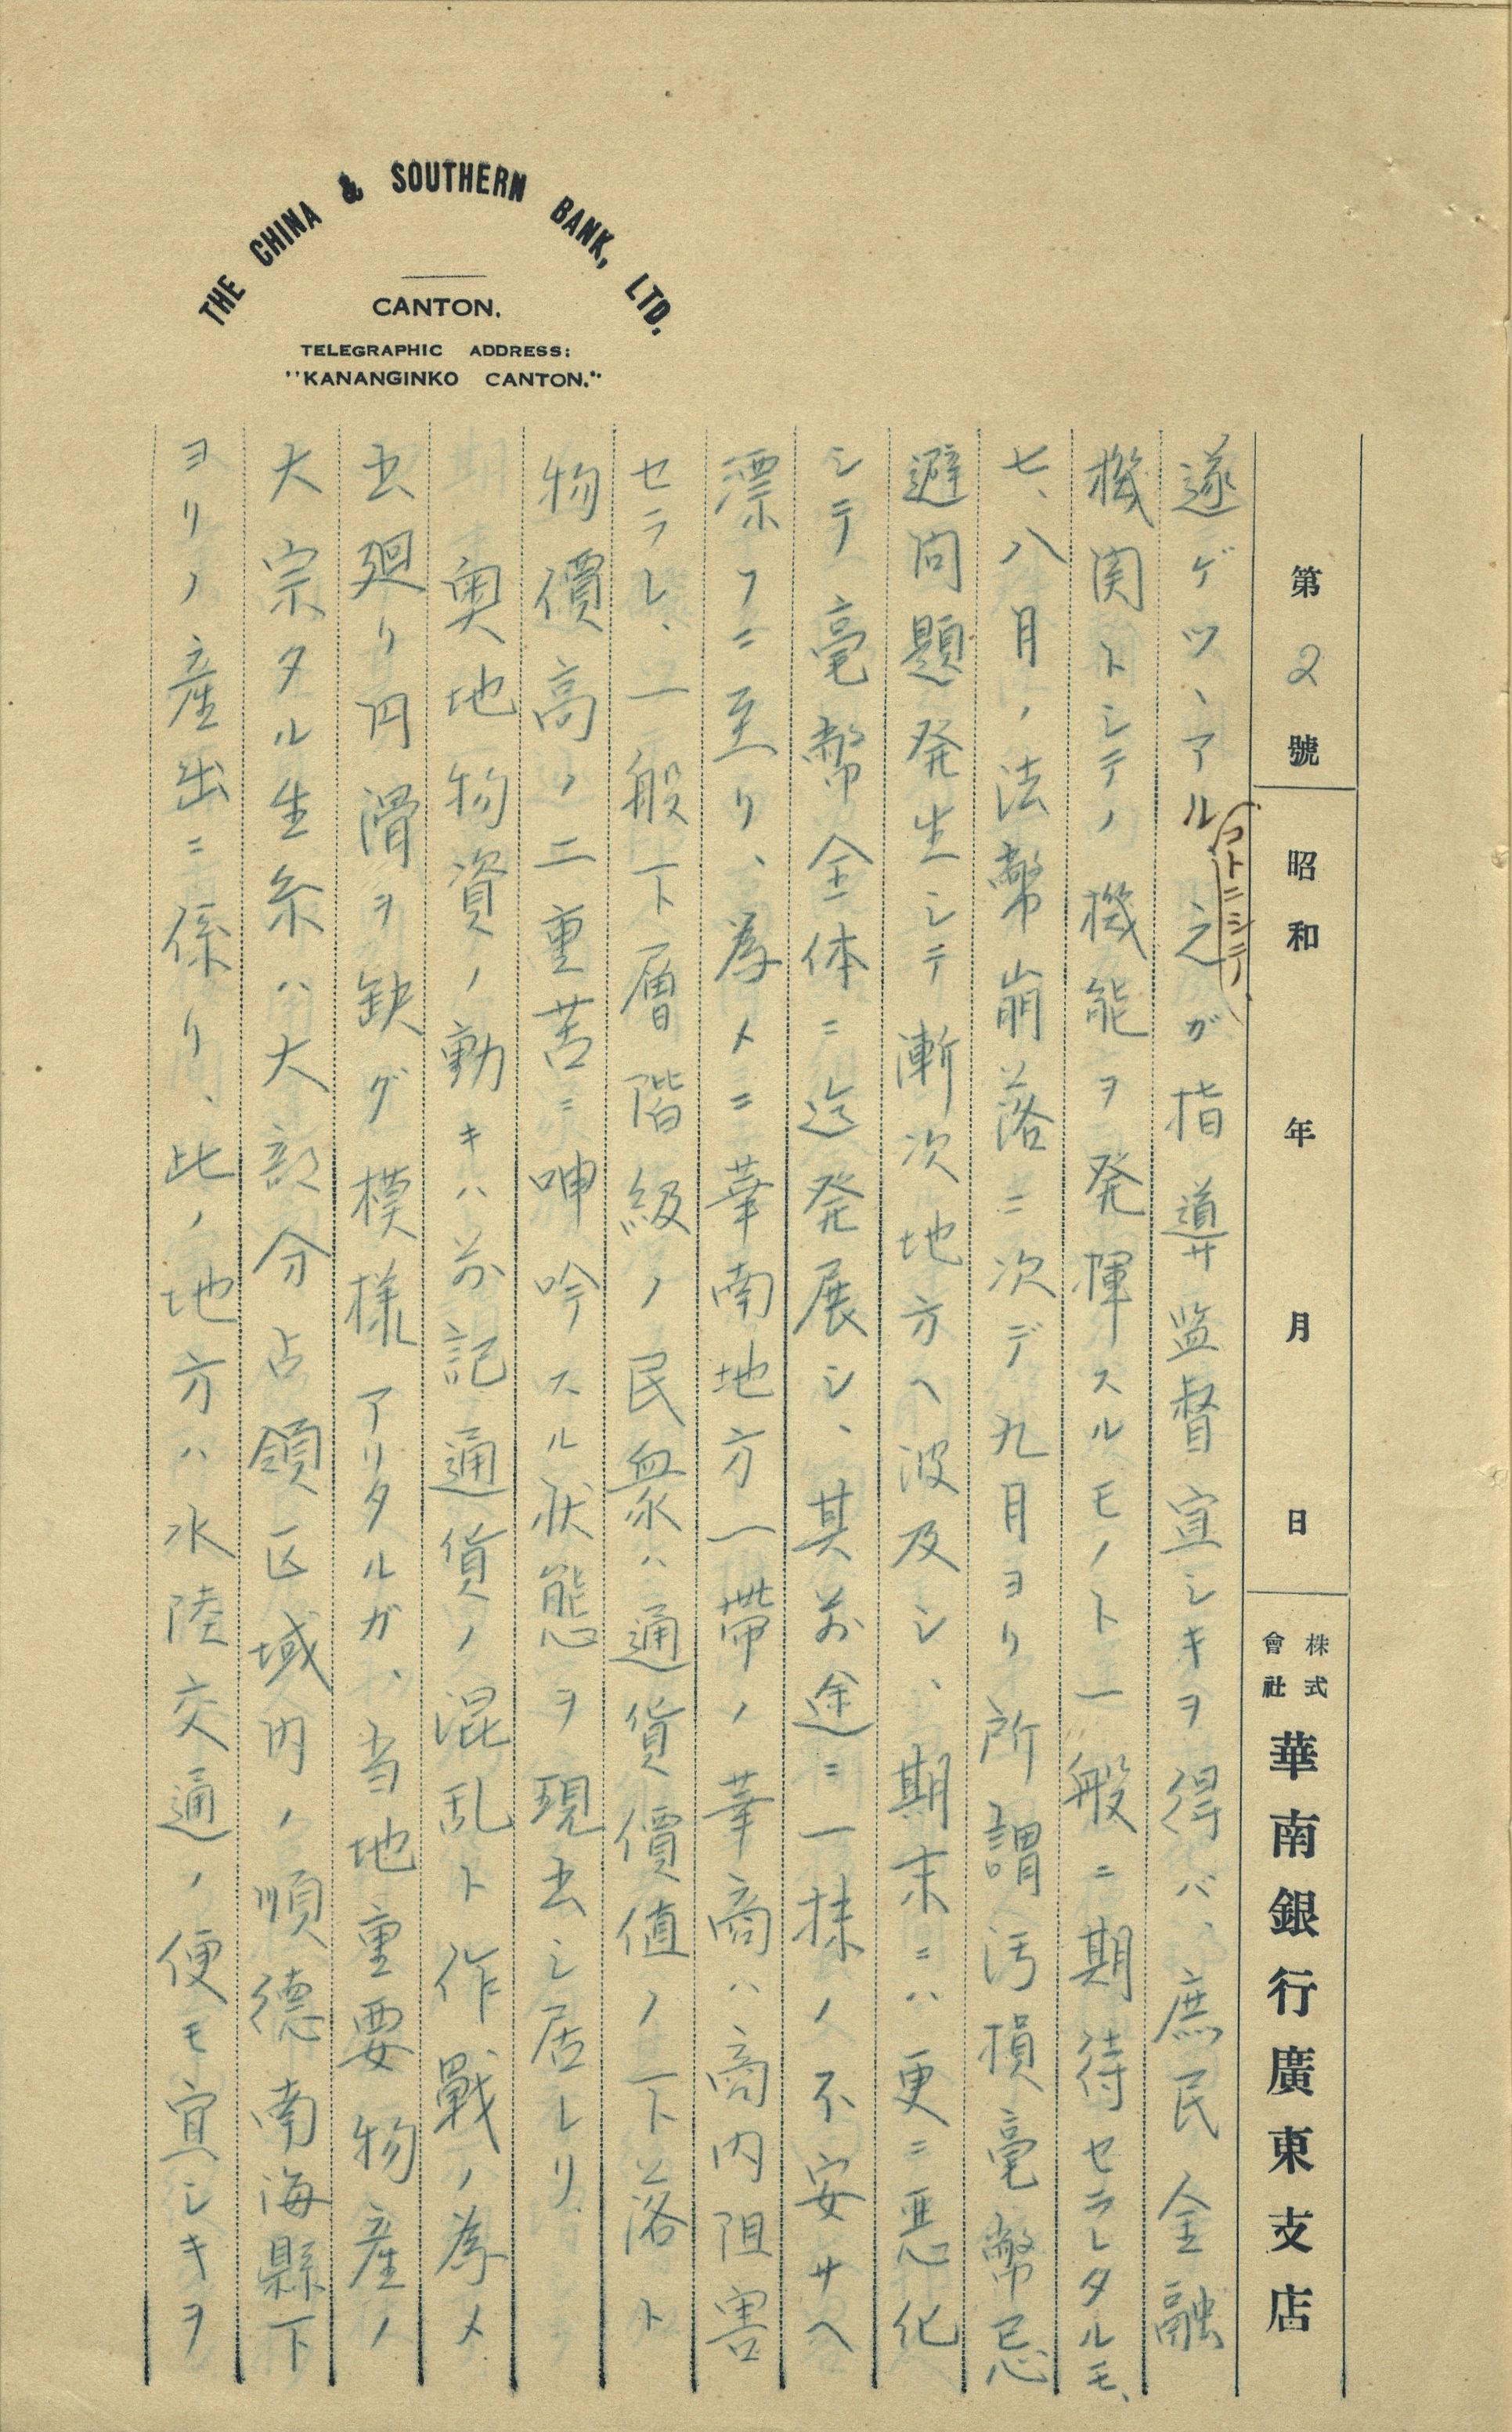 THE CHINA & SOUTHERN BANK, LTD.
CANTON.
TELEGRAPHIC ADDRESS:
"KANANGINKO CANTON."
第2號 昭和 年 月 日 株式會社 華南銀行廣東支店
遂ゲツヽアルコトニシテ、之ガ指導サ監督宜シキヲ得バ、庶民金融
機関トシテノ機能ヲ発揮スルモノト一般ニ期待セラレタルモ、
七、八月ノ法幣崩落ニ次デ九月ヨリ所謂汚損毫幣忌
避問題発生シテ漸次地方ヘ波及シ、期末ニハ更ニ悪化
シテ毫幣全体ニ迄発展シ、其前途ニ一抹ノ不安サヘ
漂フニ至リ、為メニ華南地方一帯ノ華商ハ商内阻害
セラレ、一般下層階級ノ民衆ハ通貨價値ノ下落ト
物價高ノ二重苦ニ呻吟スル状態ヲ現出シ居レリ
奥地物資ノ動キハ前記通貨ノ混乱ト作戰ノ為メ
出廻リ円滑ヲ缺グ模様アリタルガ、当地重要物産ノ
大宗タル生糸ハ大部分占領区域内ノ順德南海縣下
ヨリノ産出ニ係リ、此ノ地方ハ水陸交通ノ便モ宜シキヲ